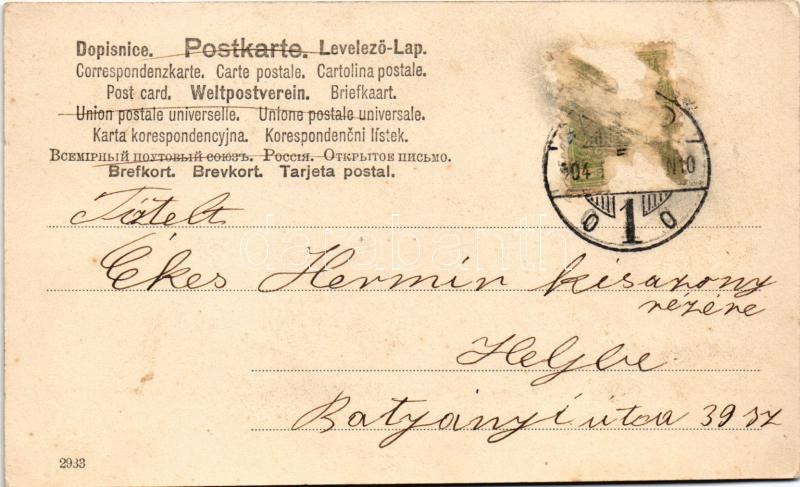 Dopisnice. Postkarte. Levelező-Lap.
Correspondenzkarte. Carte postale. Cartolina postale.
Post card. Weltpostverein. Briefkaart.
Union postale universelle. Unione postale universale.
Karta korespondencyjna. Korespondenčni lístek.
Всемірный почтовый союзъ. Россія. Открытое письмо.
Brefkort. Brevkort. Tarjeta postal.
904 N10
1
Tiztelt
Ékes Hermin kisarony
rézére
Heljbe
Batyányi útca 39 sz
2933
darabanth